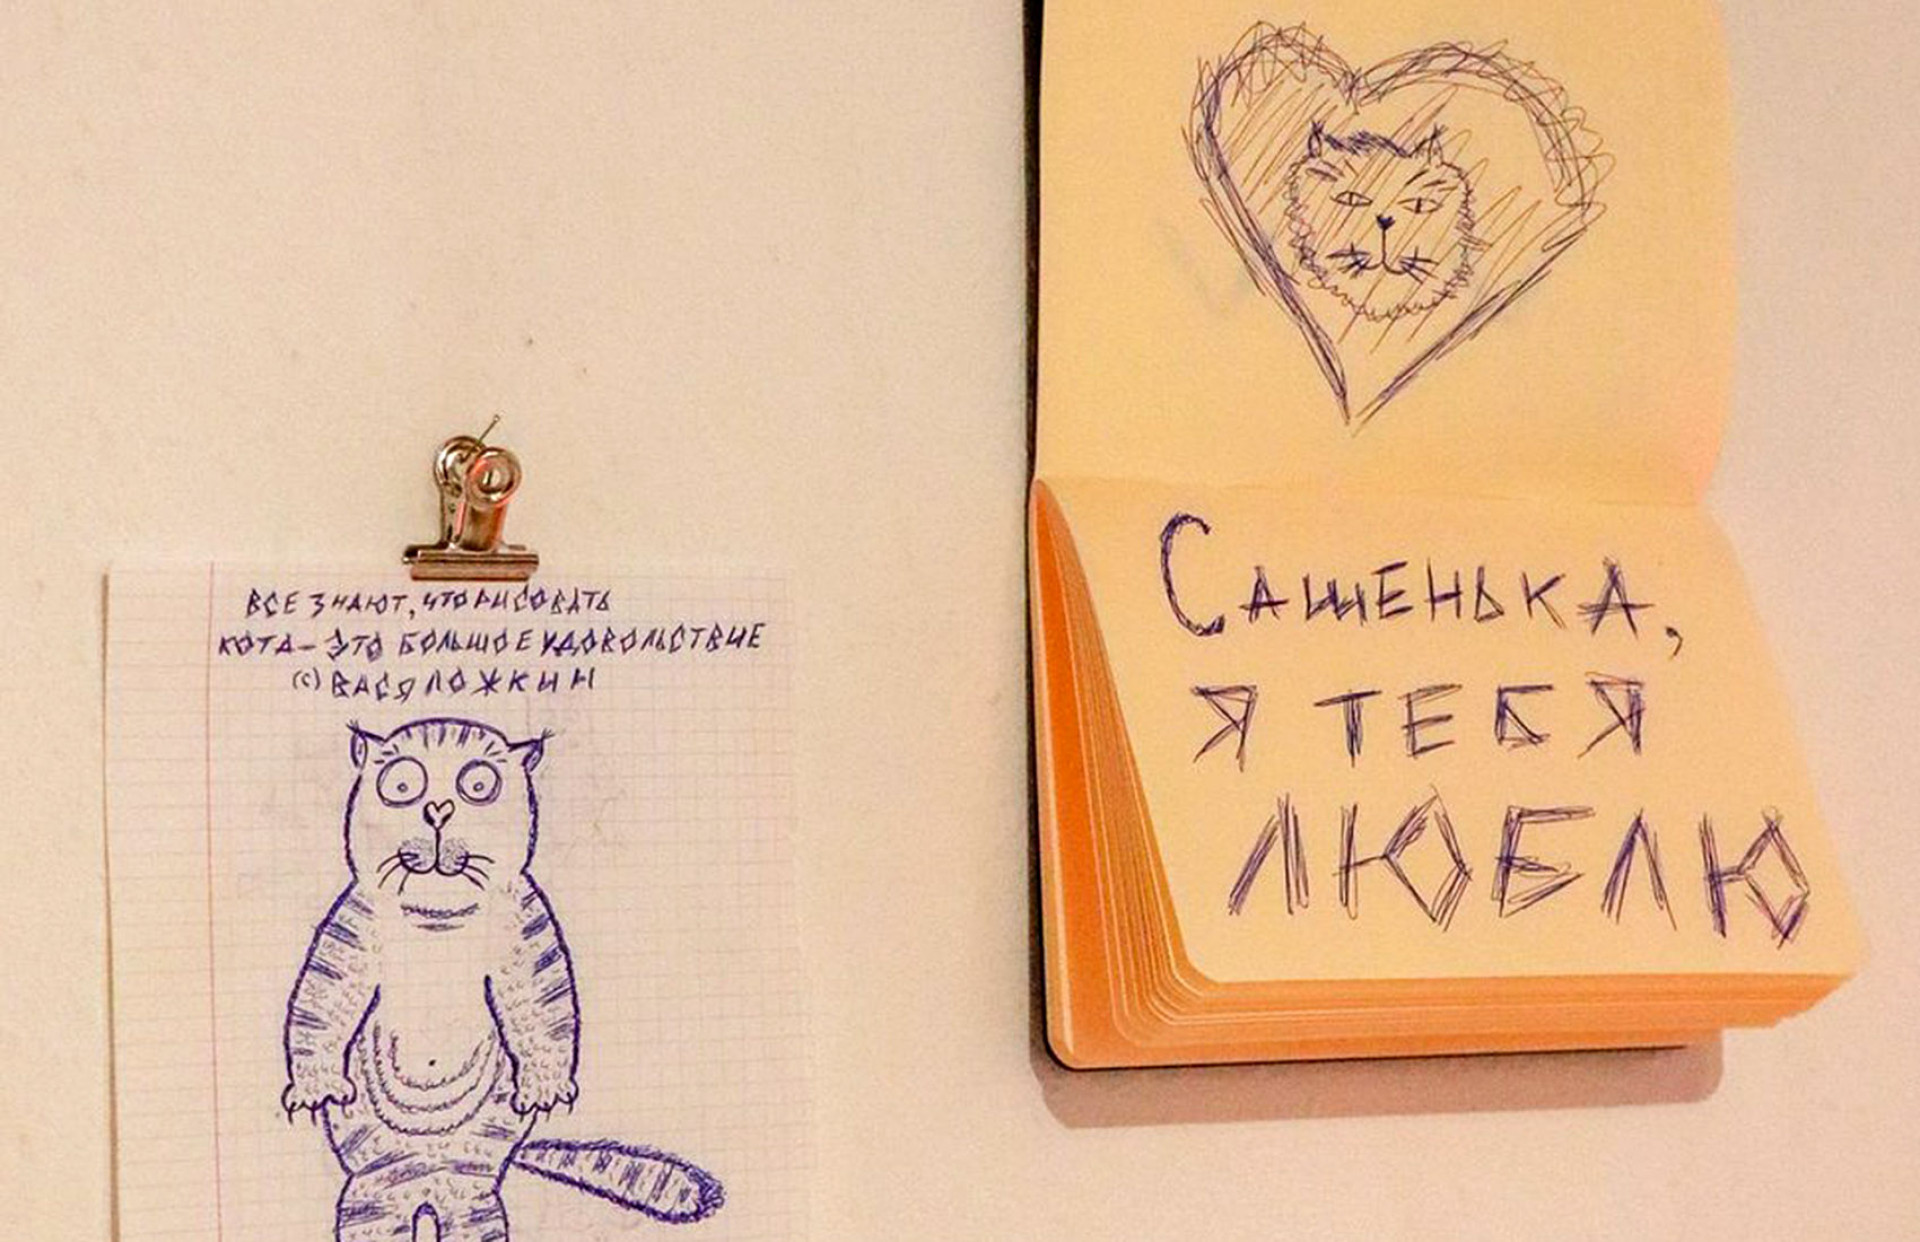 ВСЕ ЗНАЮТ, ЧТО РИСОВАТЬ
КОТА - ЭТО БОЛЬШОЕ УДОВОЛЬСТВИЕ
(С) ВАСЯ ЛОЖКИН
САШЕНЬКА,
Я ТЕБЯ
ЛЮБЛЮ